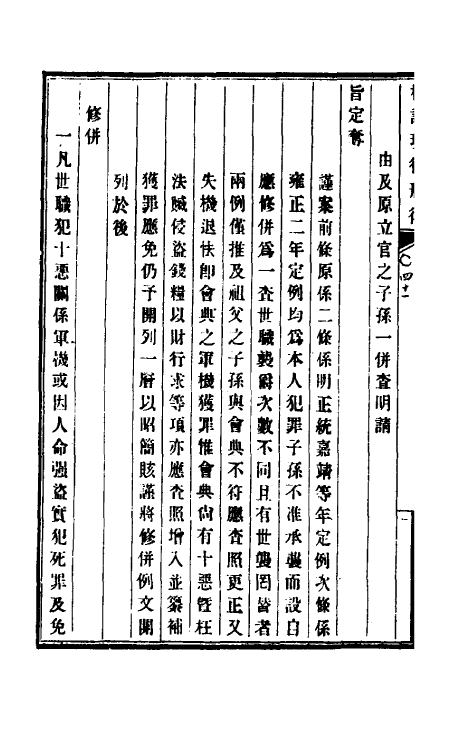 由及原立官之子孫一併查明請
旨定奪
謹案前條原係二條係明正統嘉靖等年定例次條係
雍正二年定例均為本人犯罪子孫不准承襲而設自
應修併為一查世職襲爵次數不同且有世襲罔替者
兩例僅推及祖父之子孫與會典不符應查照更正又
失機退怯卽會典之軍機獲罪惟會典尚有十惡曁枉
法贓侵盜錢糧以財行求等項亦應查照增入並纂補
獲罪應免仍予開列一層以昭簡賅謹將修併例文開
列於後
修併
一凡世職犯十惡關係軍機或因人命強盜實犯死罪及免